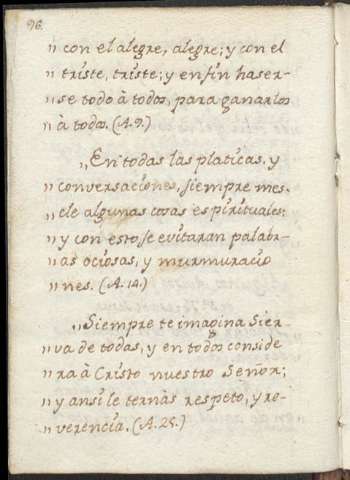 96.
„ con el alegre, alegre; y con el
„ triste, triste; y en fin haser-
„ se todo à todos, para ganarlos
„ à todos. (A. 9.)
„ En todas las platicas, y
„ conversaciones, siempre mes-
„ cle algunas cosas espirituales:
„ y con esto, se evitaran palabr-
„ as ociosas, y murmuracio
„ nes. (A. 14.)
„ Siempre te imagina Sier-
„ va de todas, y en todos conside
„ ra à Cristo nuestro Señor;
„ y ansi le ternàs respeto, y re-
„ verencia. (A. 25.)